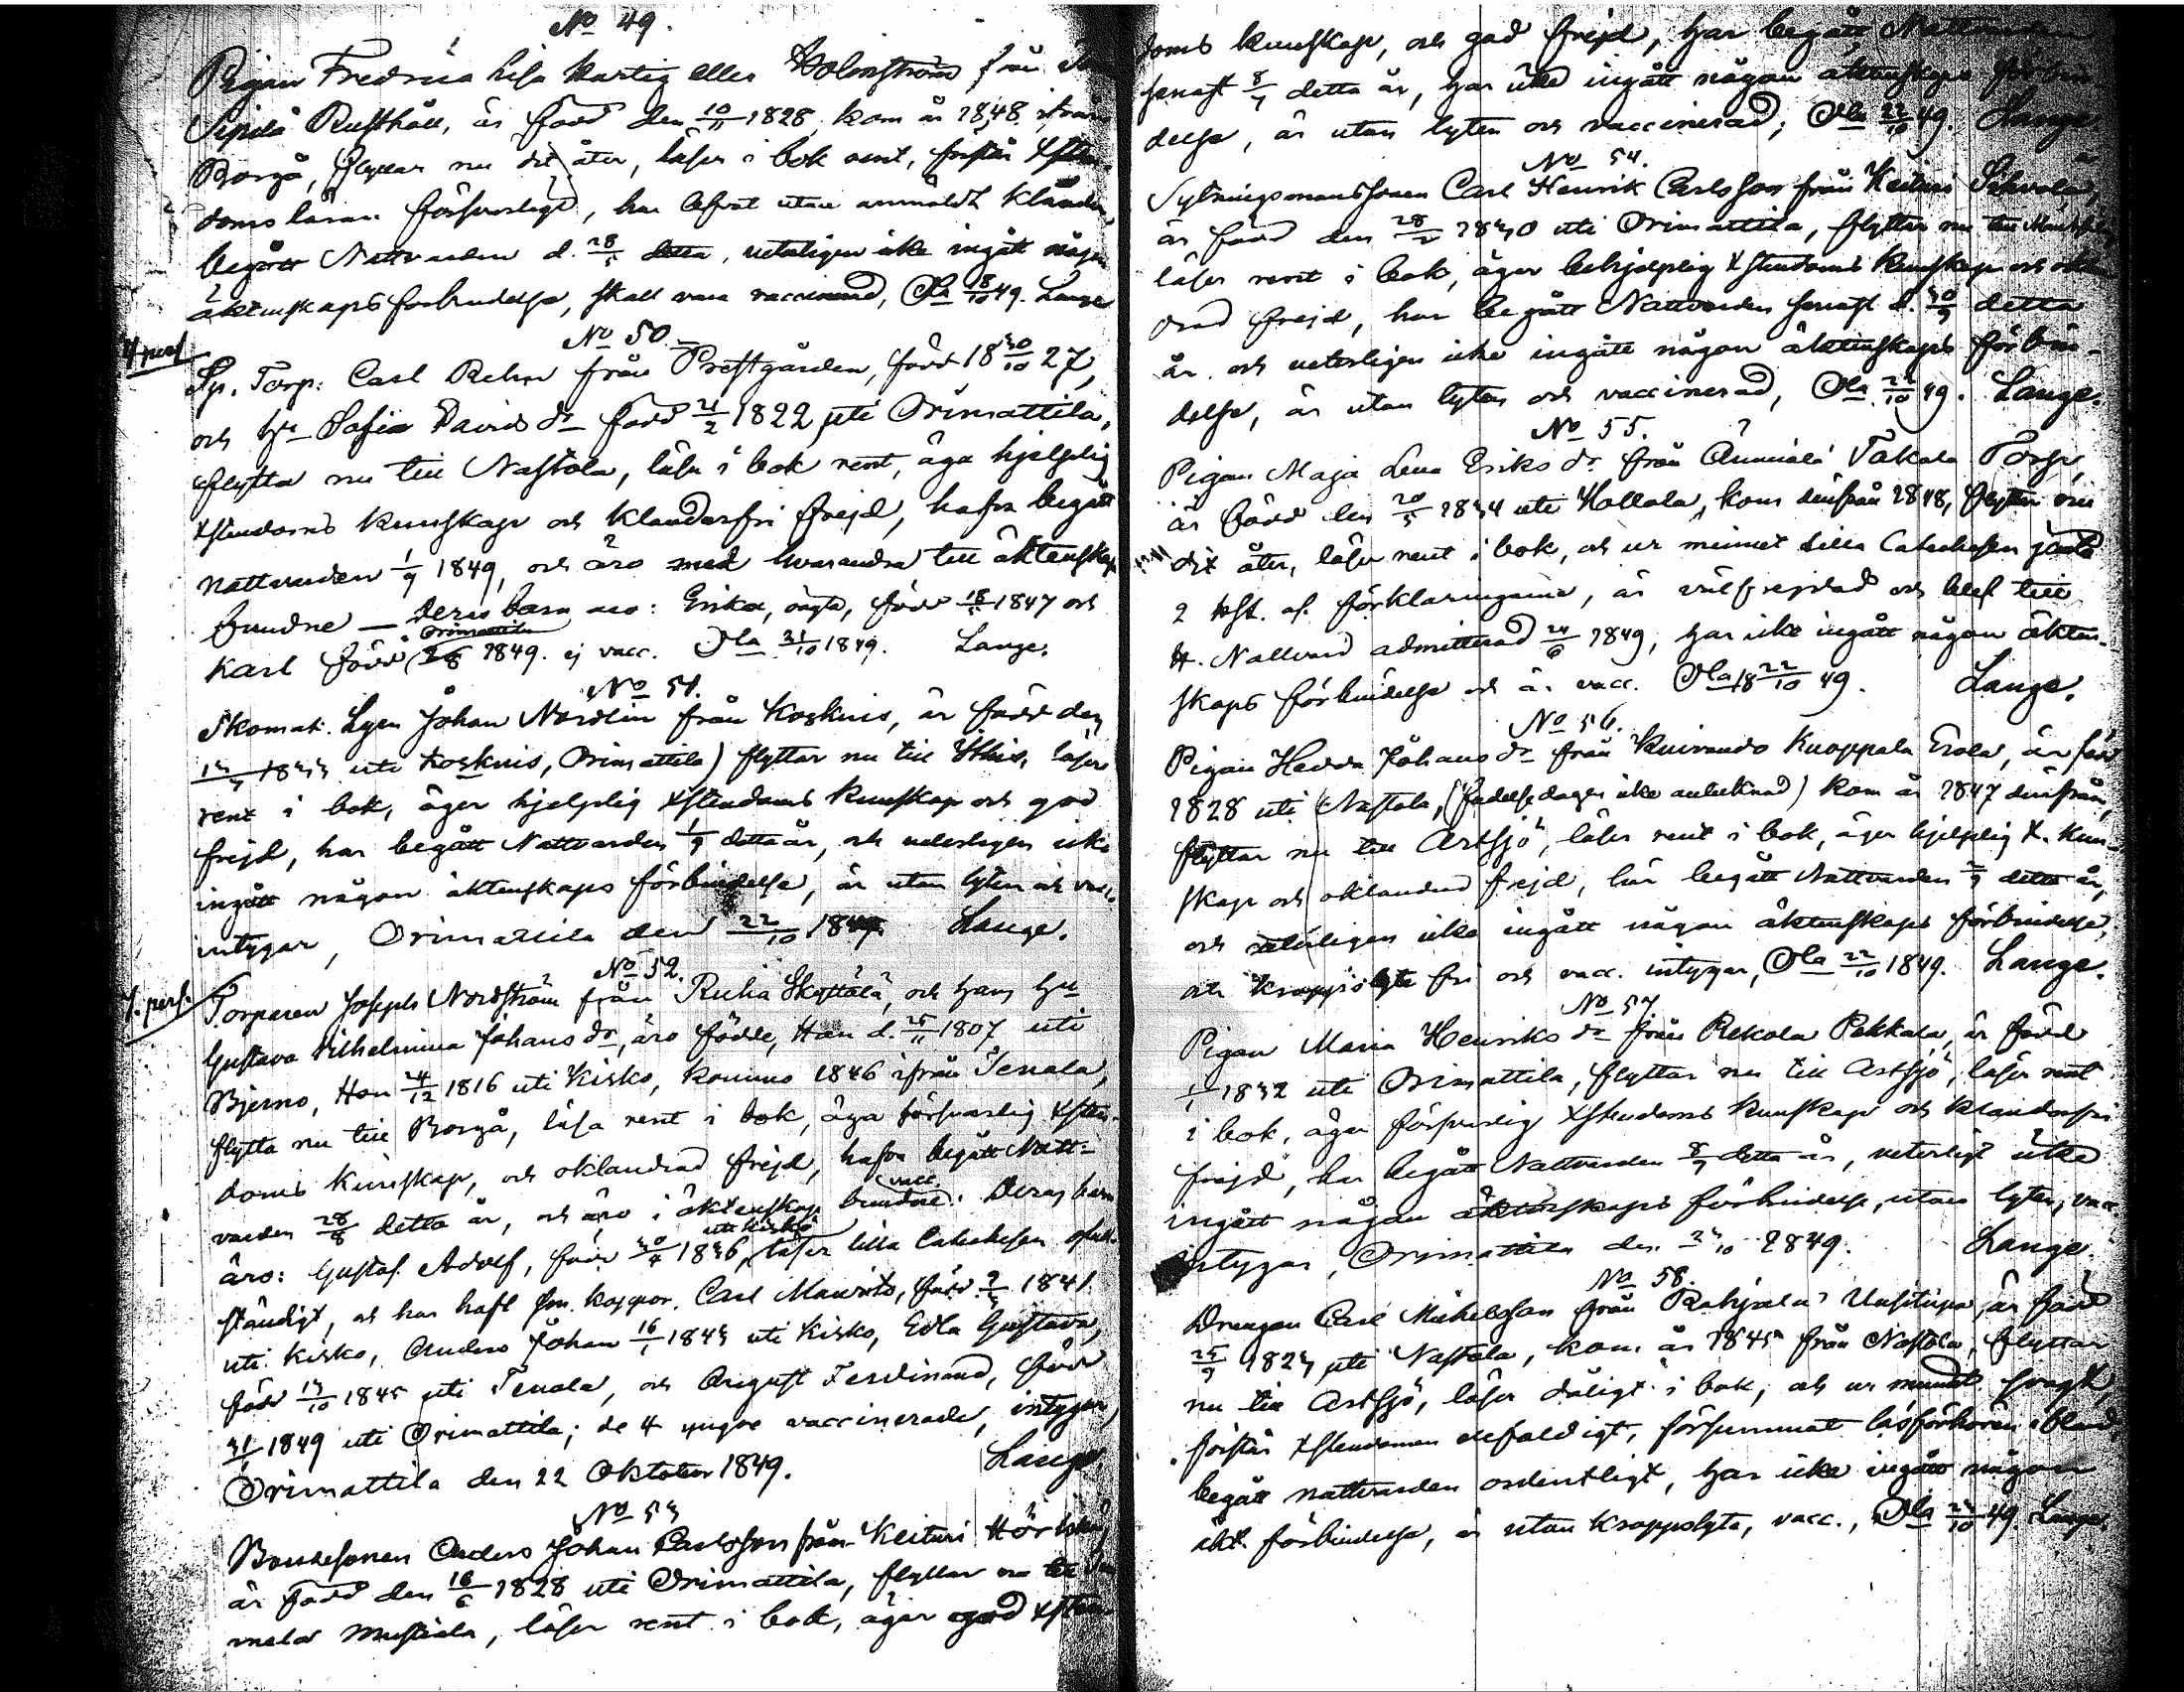 No 49.
Pigan Fredrica Lisa Hartig eller Holmström från
Sipilä Rusthåll, är född den 10/11 1828, kom år 1848 ifrån
Borgå, flyttar nu dit åter, läser i bok rent, förstår Xsten-
doms läran försvarligt, har lefvat utan anmäldt klander,
begått Nattvarden d. 28/ detta, veterligen icke ingått någon
äktenskapsförbindelse, skall vara vaccinerad, Ola 18/10 49. Lange
No 50.
4 pers.
Sp. Torp: Carl Rehn från Prestgården, född 18 30/10 27,
och hu Sofia Davids dr född 21/2 1822 uti Orimattila,
flytta nu till Nastola, läsa i bok rent, äga hjelplig
Xstendoms kunskap och klanderfri frejd, hafva begått
nattvarden 1/9 1849, och äro med hvarandra till äktenskap
bundne — Deras barn äro: Erika, oägta, född 18/ 1847 och
Orimattila
Karl född 28/8 1849. ej vacc. Ola 31/10 1849. Lange.
No 51.
Skomak. Lgn Johan Nordlin från Koskuis, är född den
uti Koskuis, Orimattila) flyttar nu till läser
rent i bok, äger hjelplig Xstendoms kunskap och god
frejd, har begått Nattvarden 1/9 detta år, och veterligen icke
ingått någon äktenskaps förbindelse, är utan lyten och vacc.
intygar, Orimattila den 22/10 1849. Lange.
No 52.
7. pers.
Torparen Joseph Nordström från Ruha Skyttälä, och hans hu
Gustava Vilhelmina Johans dr, äro födde, Han d. 25/11 1807 uti
Bjerno, Hon 24/12 1816 uti Kisko, kommo 1846 ifrån Tenala,
flytta nu till Borgå, läsa rent i bok, äga försvarlig Xsten-
doms kunskap, och oklandrad frejd, hafva begått Natt-
vacc.
varden 28/8 detta år, och äro i äktenskap bundne. Deras barn
uti Kisko
äro: Gustaf Adolf, född 30/4 1836, läser lilla Catechesen ofull-
ständigt, och har haft sm. koppor. Carl Mauritz, född 2/3 1841
uti Kisko, Anders Johan 16/1 1843 uti Kisko, Edla Gustava,
född 13/10 1845 uti Tenala, och August Ferdinand, född
31/ 1849 uti Orimattila; de 4 yngre vaccinerade, intygar,
Orimattila den 22 Oktober 1849. Lange
No 53
Bondesonen Anders Johan Carlsson från Keituri
är född den 16/6 1828 uti Orimattila, flyttar nu till
Mustiala, läser rent i bok, äger god Xsten-
doms kunskap, och god frejd, har begått Nattvarden
senast 8/7 detta år, har icke ingått någon äktenskaps förbin-
delse, är utan lyten och vaccinerad; Ola 22/10 49. Lange
No 54.
Sytningsmanssonen Carl Henrik Carlsson från Keituri
är född den 28/2 1830 uti Orimattila, flyttar nu till
läser rent i bok, äger behjelplig Xstendoms kunskap och oklan-
drad frejd, har begått Nattvarden senast d. 30/9 detta
år och veterligen icke ingått någon äktenskaps förbin-
delse, är utan lyten och vaccinerad, Ola 22/10 49. Lange.
No 55.
Pigan Maja Lena Eriks dr från Takala Torp,
är född den 20/5 1834 uti Hollola, kom derifrån 1848, flyttar nu
dit åter, läser rent i bok, och ur minnet lilla Catechesen jemte
2 st. af förklaringarna, är välfrejdad och blef till
H. Nattvard admitterad 24/6 1849, har icke ingått någon äkten-
skaps förbindelse och är vacc. Ola 18 22/10 49. Lange.
No 56.
Pigan Hedda Johans dr från Kuivando Knoppala Erola, är född
1828 uti Nastola, (födelsedagen icke antecknad) kom år 1847 derifrån,
flyttar nu till Artsjö, läser rent i bok, äger hjelplig X. kun-
skap och oklandrad frejd, har begått Nattvarden detta år,
och veterligen icke ingått någon äktenskaps förbindelse,
och kroppslyte fri och vacc. intygar, Ola 22/10 1849. Lange.
No 57
Pigan Maria Henriks dr från Rekola Pekkala, är född
1/1 1832 uti Orimattila, flyttar nu till Artsjö, läser rent
i bok, äger försvarlig Xstendoms kunskap och klanderfri
frejd, har begått Nattvarden 8/7 detta år, veterligt icke
ingått någon äktenskaps förbindelse, utan lyten, vacc.
intygar, Orimattila den 23/10 1849. Lange.
No 58.
Drengen Carl Michelsson från Uusitupa, är född
25/9 1823 uti Nastola, kom år 1845 från Nastola, flyttar
nu till Artsjö, läser dåligt i bok, och ur minnet svagt,
förstår Xstendomen enfaldigt, försummat läsförhören ibland,
begått nattvarden ordentligt, har icke ingått någon
äkt. förbindelse, är utan kroppslyte, vacc., Ola 23/10 49. Lange.